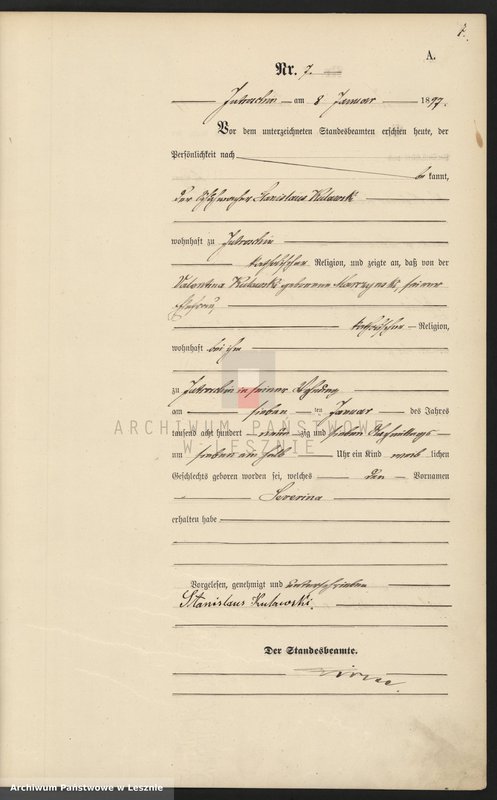 7.
A.
Nr. 7.
Jutroschin am 8 Januar 1897.
Vor dem unterzeichneten Standesbeamten erschien heute, der
Persönlichkeit nach
be kannt,
der Stanislaus Kulawski
wohnhaft zu Jutroschin
katholischer Religion, und zeigte an, daß von der
Valentina Kulawski geborenen seiner
Ehefrau,
katholischer Religion,
wohnhaft bei ihm
zu Jutroschin in seiner Wohnung
am sieben ten Januar des Jahres
ARCHIWUM PAŃSTWOWE
W LESZNIE
tausend acht hundert neun zig und sieben Nachmittags
um sieben ein halb Uhr ein Kind weib lichen
Geschlechts geboren worden sei, welches den Vornamen
Severina
erhalten habe
Vorgelesen, genehmigt und unterschrieben
Stanislaus Kulawski.
Der Standesbeamte.
Archiwum Państwowe w Lesznie